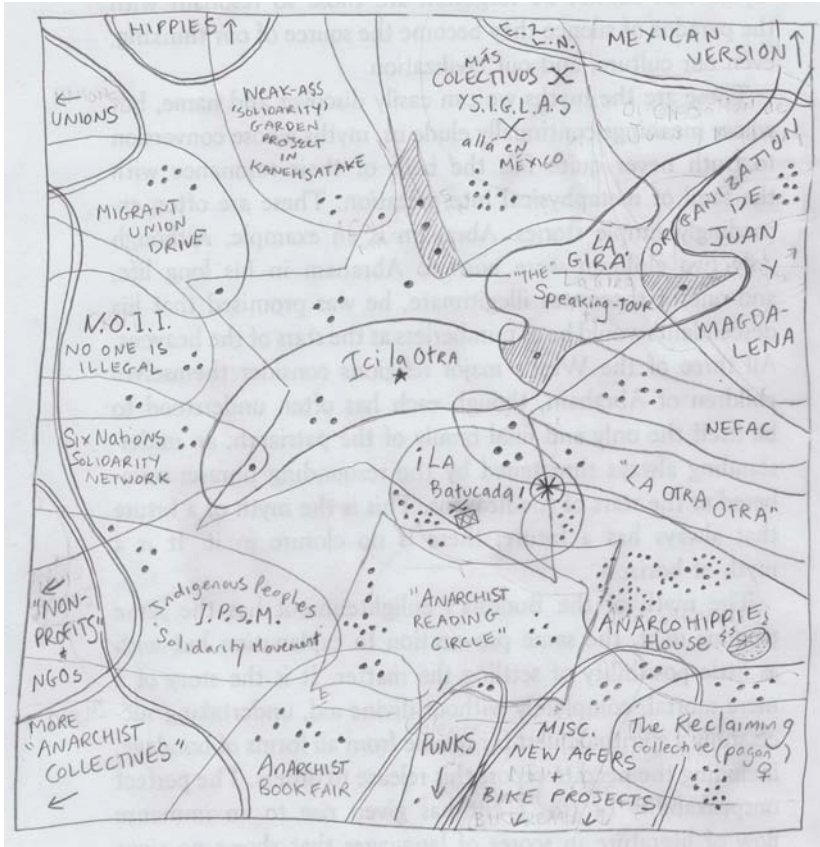 HIPPIES ↑
E.Z.L.N.
MEXICAN
VERSION ↑
← UNIONS
WEAK-ASS
"SOLIDARITY"
GARDEN
PROJECT
IN
KANEHSATAKE
MÁS
COLECTIVOS
Y S.I.G.L.A.S
allá en
MÉXICO
MIGRANT
UNION
DRIVE
ORGANIZATION
DE
JUAN
Y
MAGDA-
LENA
LA
GIRA
"THE
Speaking-tour
N.O.I.I.
NO ONE IS
ILLEGAL
Ici la Otra
NEFAC
Six Nations
SOLIDARITY
NETWORK
¡LA
Batucada!
"LA OTRA OTRA"
← "NON-
PROFITS"
+
NGOS
Indigenous Peoples
I.P.S.M.
Solidarity Movement
"ANARCHIST
READING
CIRCLE"
ANARCOHIPPIE
House
MORE
"ANARCHIST
COLLECTIVES"
←
ANARCHIST
BOOKFAIR
PUNKS
MISC.
NEW AGERS
The Reclaiming
Collective (pagan)
♀
BIKE PROJECTS